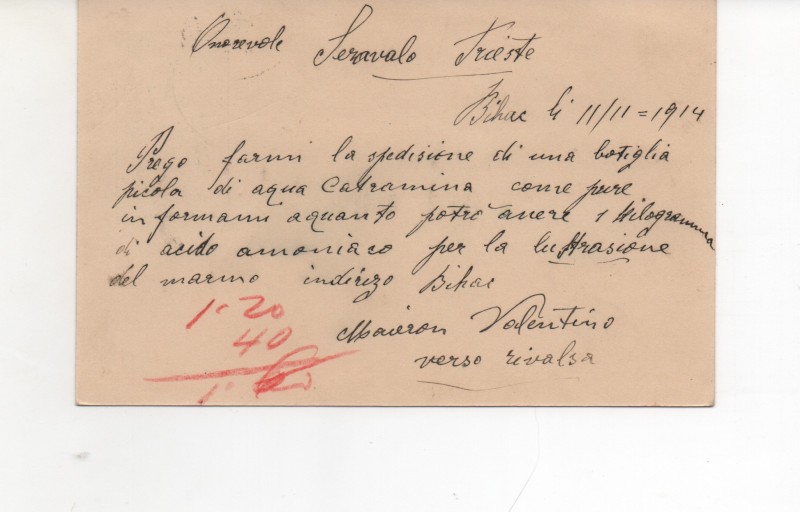 Onorevole Seravalo Trieste
Bihac li 11/11 = 1914
Prego farmi la spedisione di una botiglia
picola di aqua Catramina come pure
in formarmi aquanto potrò avere 1 Kilogramma
di acido amoniaco per la lustrasione
del marmo indirizo Bihac
1·20
40
1·60
Maieron Valentino
verso rivalsa